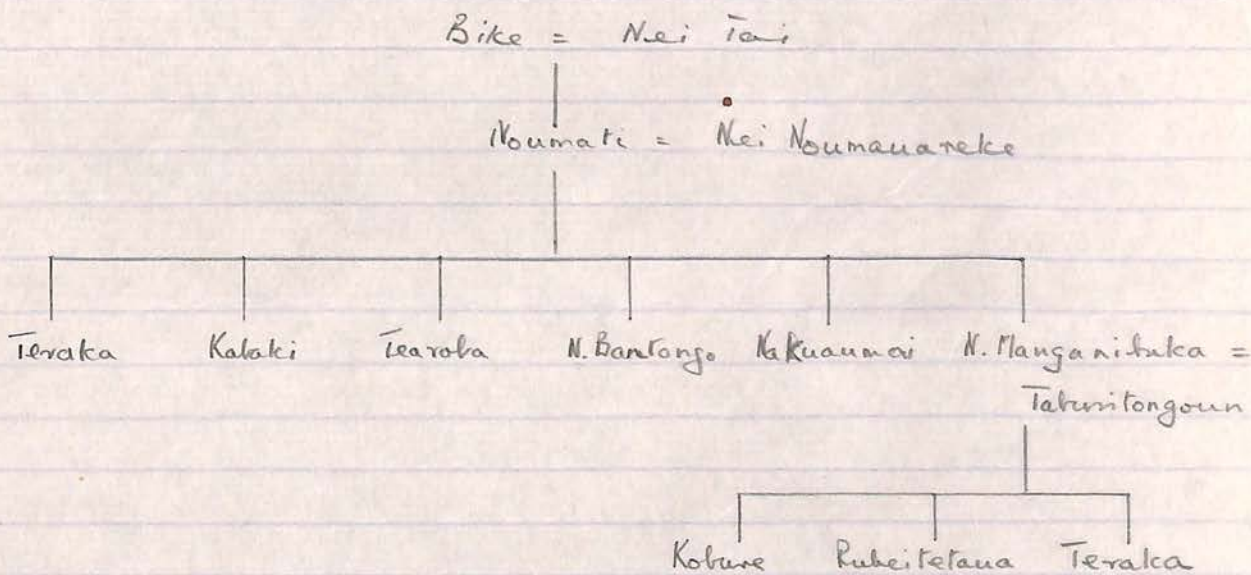 Bike = Nei Tai
Noumati = Nei Noumauareke
Teraka Kabaki Tearoba N. Bantongo Nakuaumai N. Manganibuka =
Taburitongoun
Kobure Rubeitetaua Teraka